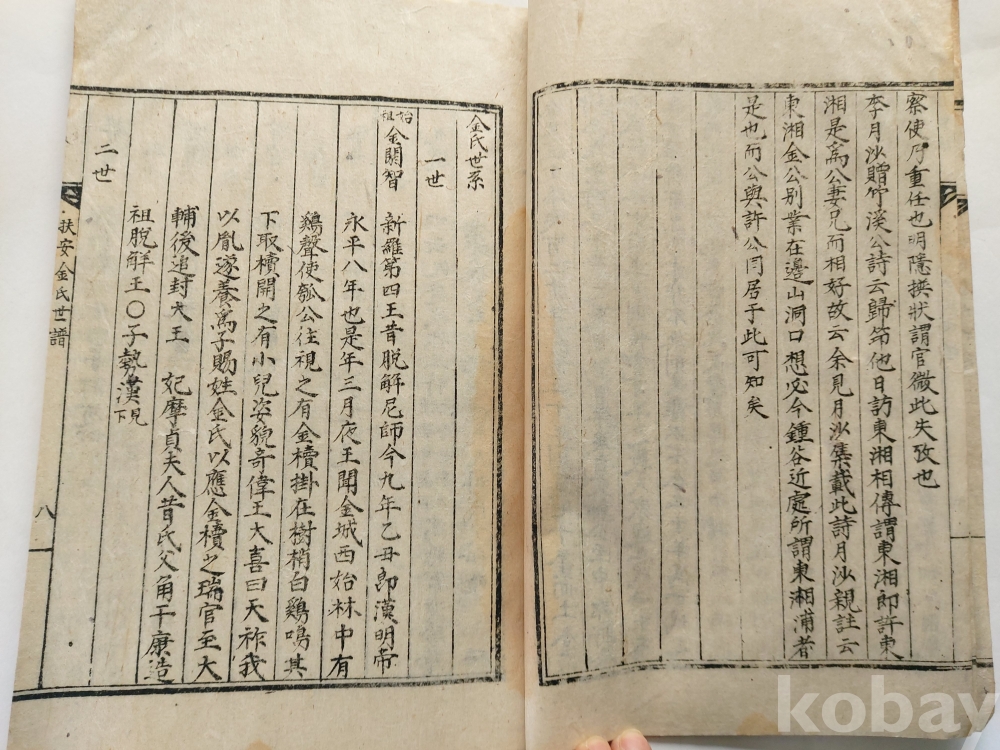 察使乃重任也明隱挾狀謂官微此失攷也
李月沙贈竹溪公詩云歸笻他日訪東湘相傳謂東湘卽許東
湘是爲公妻兄而相好故云余見月沙集載此詩月沙親註云
東湘金公別業在邊山洞口想必今鍾谷近處所謂東湘浦者
是也而公與許公同居于此可知矣
金氏世系
一世
始祖金閼智 新羅第四王昔脫解尼師今九年乙丑卽漢明帝
永平八年也是年三月夜王聞金城西始林中有
鷄聲使瓠公往視之有金櫝掛在樹梢白鷄鳴其
下取櫝開之有小兒姿貌奇偉王大喜曰天祚我
以胤遂養爲子賜姓金氏以應金櫝之瑞官至大
輔後追封大王 妃摩貞夫人昔氏父角干康造
祖脫解王○子勢漢見下
二世
扶安金氏世譜
八
kobay